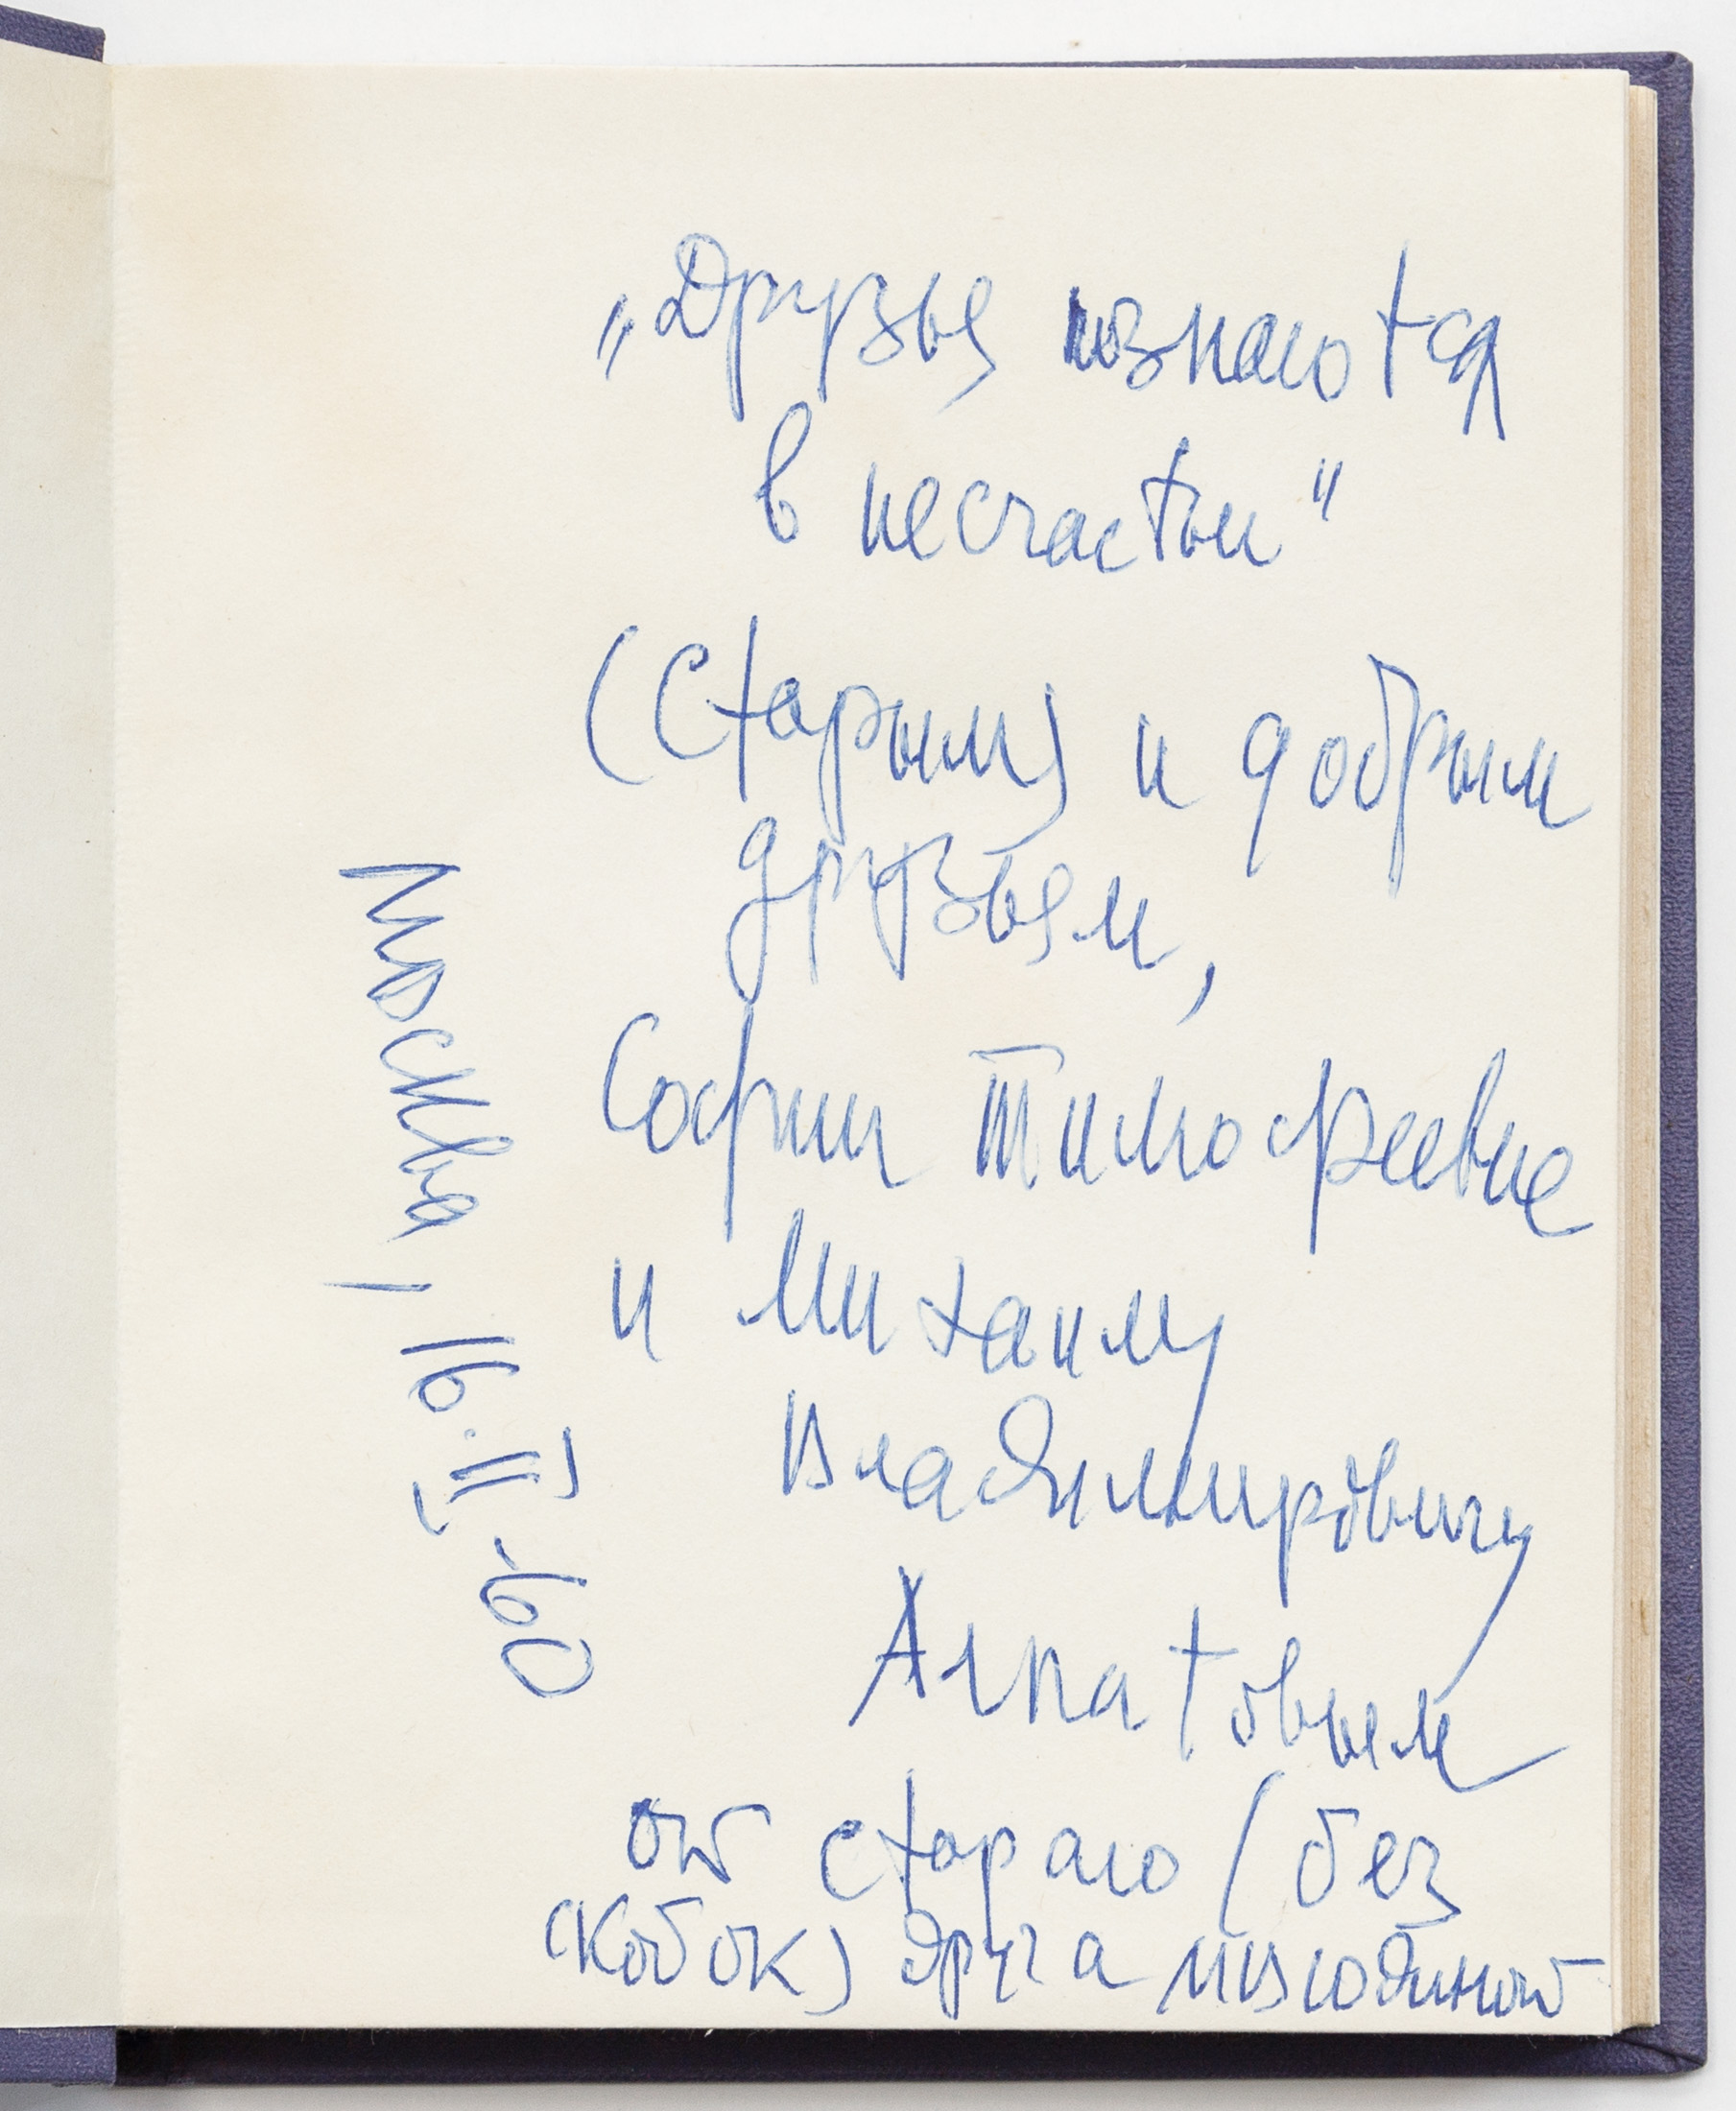 „Друзья познаются
в несчастьи"
(Старым) и добрым
друзьям,
Софии Тимофеевне
и Михаилу
Владимировичу
Алпатовым
от старого (без
скобок) друга
Москва, 16.II.60